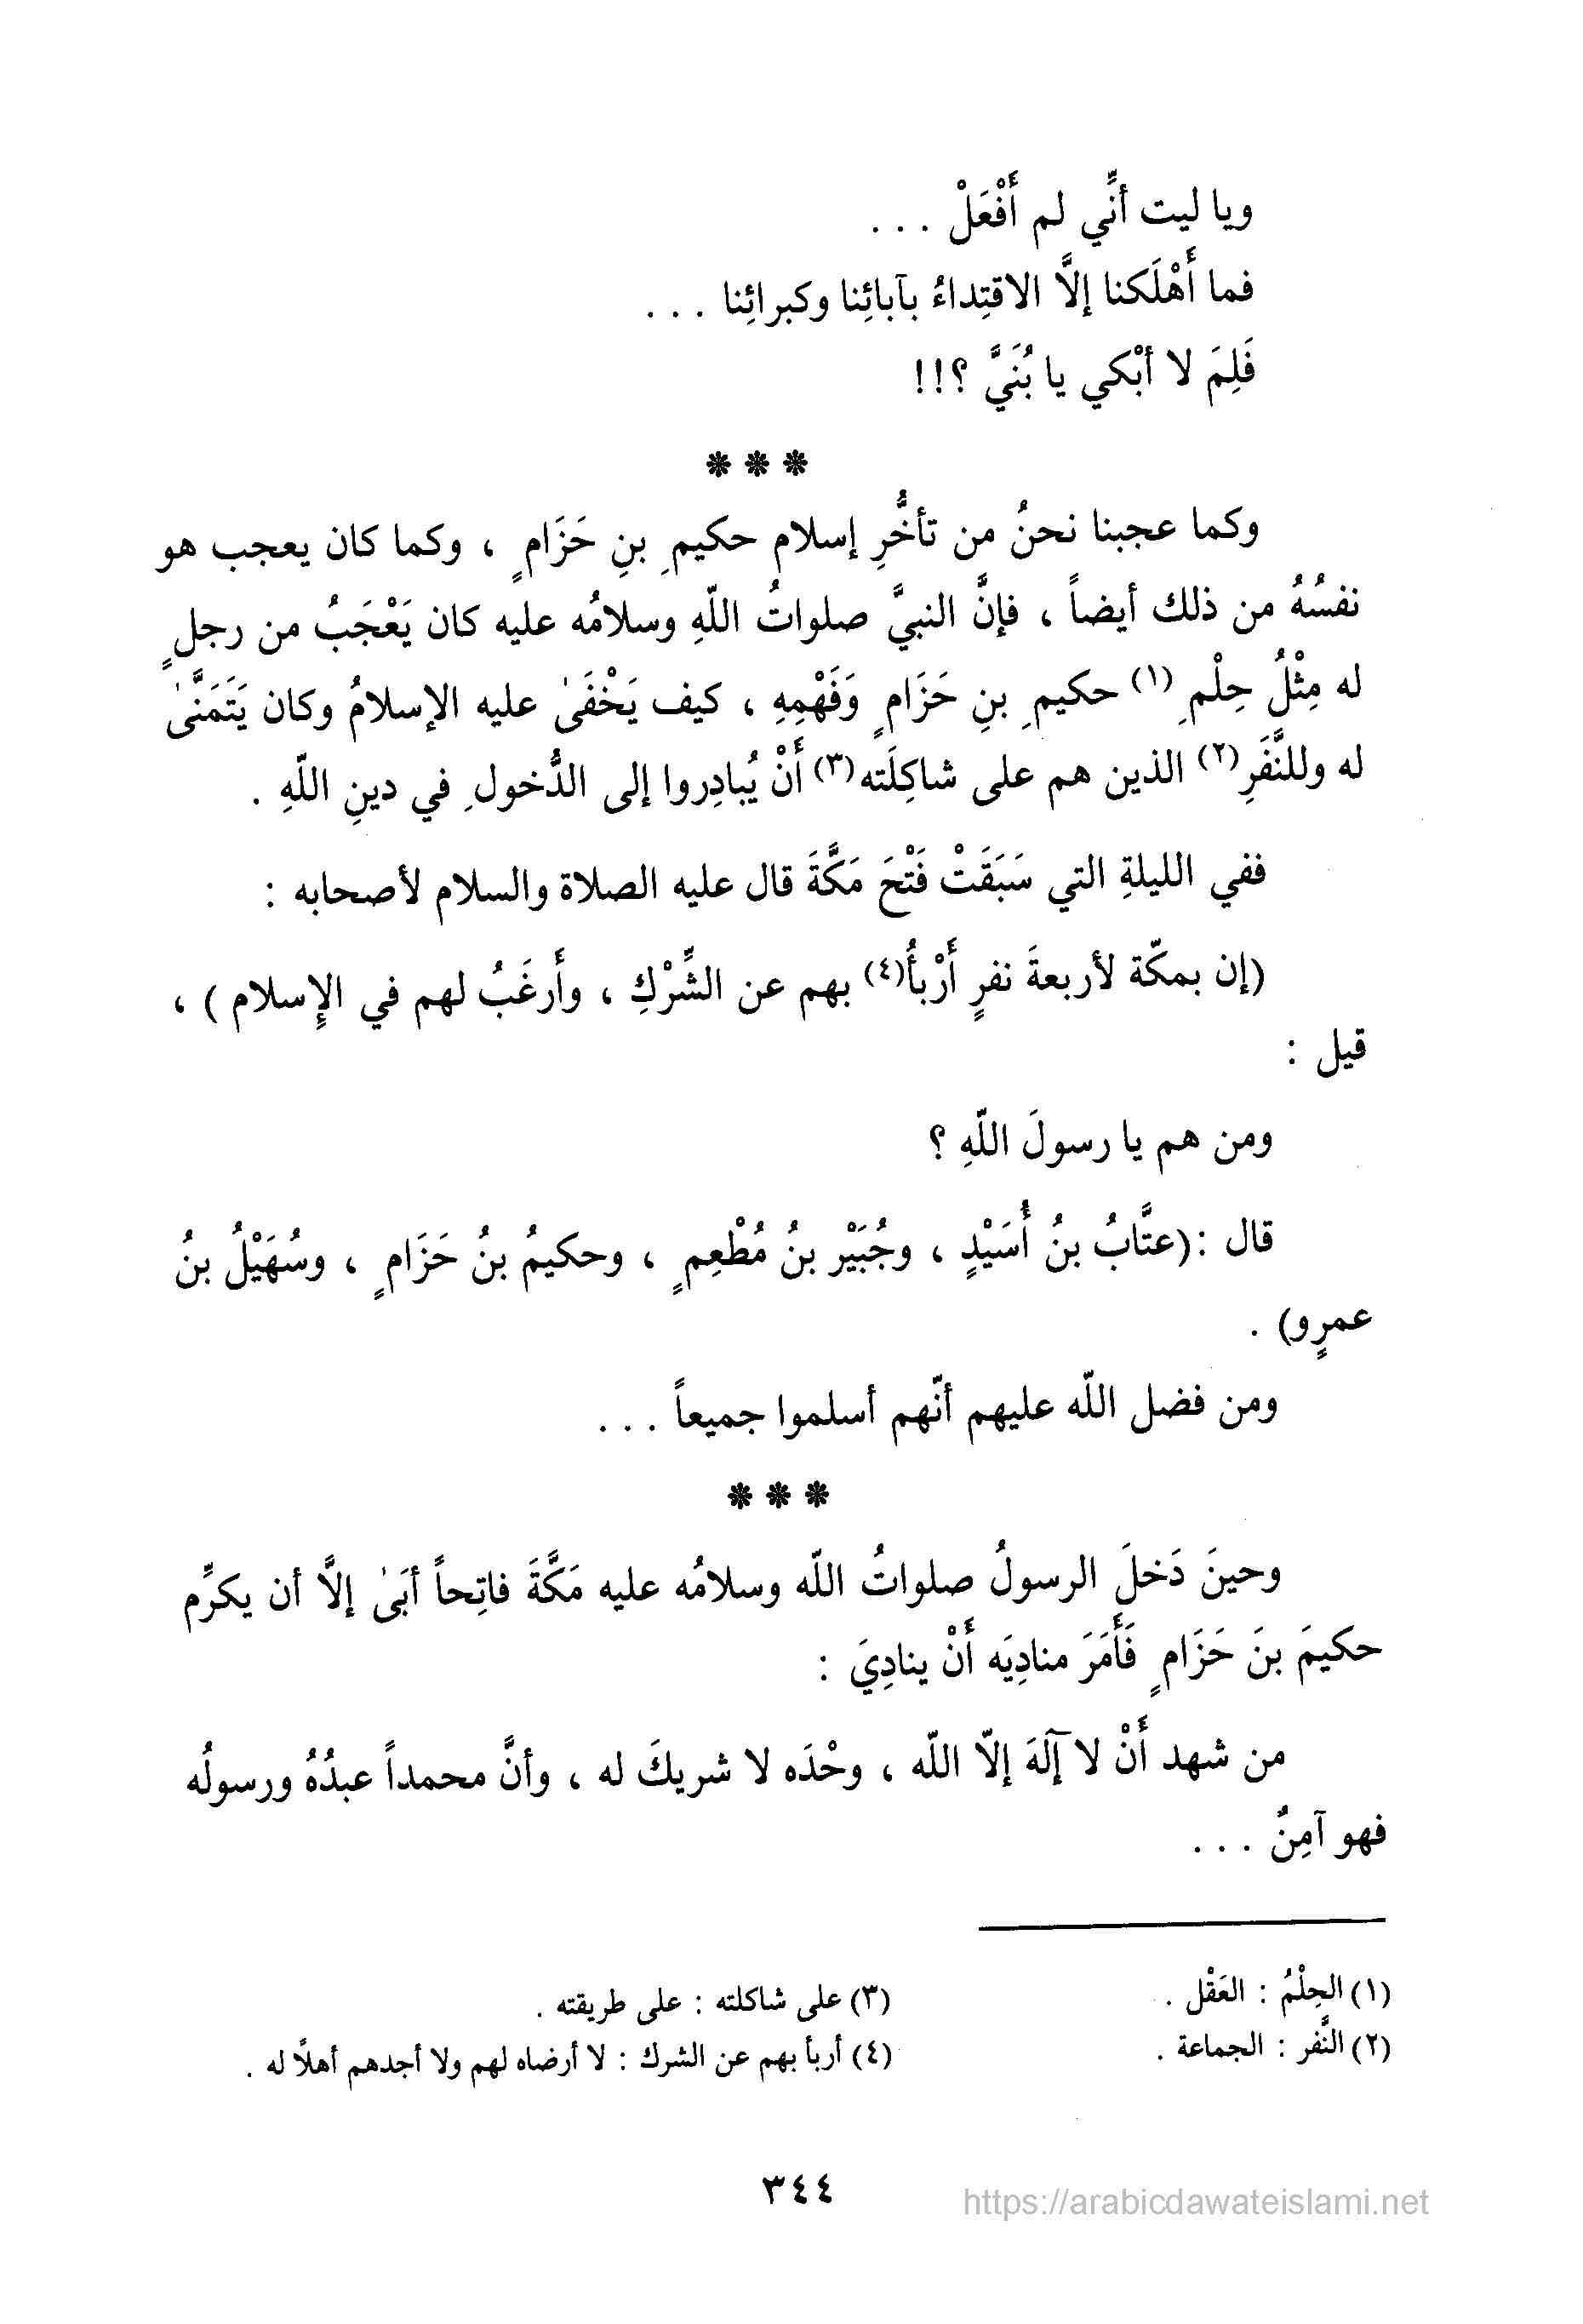 ويا ليت أنِّي لم أَفْعَلْ . . .
فما أَهْلَكنا إلَّا الاقتِداءُ بآبائِنا وكبرائِنا . . .
فَلِمَ لا أبْكي يا بُنَيَّ ؟!!
* * *
وكما عجبنا نحنُ من تأخُّرِ إسلام حكيمِ بنِ حَزَامٍ ، وكما كان يعجب هو
نفسُهُ من ذلك أيضاً ، فإنَّ النبيَّ صلواتُ اللّهِ وسلامُه عليه كان يَعْجَبُ من رجلٍ
له مِثْلُ حِلْمِ (١) حكيمِ بنِ حَزَامٍ وَفَهْمِهِ ، كيف يَخْفَىٰ عليه الإسلامُ وكان يَتَمَنَّىٰ
له وللنَّفَرِ(٢) الذين هم على شاكِلَته(٣) أَنْ يُبادِروا إلى الدُّخولِ في دينِ اللّهِ .
ففي الليلةِ التي سَبَقَتْ فَتْحَ مَكَّةَ قال عليه الصلاة والسلام لأصحابه :
(إن بمكّة لأربعةَ نفرٍ أَرْبأُ(٤) بهم عن الشِّرْكِ ، وأَرغَبُ لهم في الإِسلام ) ،
قيل :
ومن هم يا رسولَ اللّهِ ؟
قال :(عتَّابُ بنُ أُسَيْدٍ ، وجُبَيْر بنُ مُطْعِمٍ ، وحكيمُ بنُ حَزَامٍ ، وسُهَيْلُ بنُ
عمرٍو) .
ومن فضل اللّه عليهم أنّهم أسلموا جميعاً . . .
* * *
وحينَ دَخلَ الرسولُ صلواتُ اللّه وسلامُه عليه مَكَّةَ فاتِحاً أبَىٰ إلَّا أن يكرِّم
حكيمَ بنَ حَزَامٍ فَأَمَرَ منادِيَه أَنْ ينادِيَ :
من شهد أَنْ لا إِلَٰهَ إلّا اللّه ، وحْدَه لا شريكَ له ، وأنَّ محمداً عبدُهُ ورسولُه
فهو آمِنٌ . . .
(١) الحِلْمُ : العَقْل .
(٢) النَّفر : الجماعة .
(٣) على شاكلته : على طريقته .
(٤) أربأ بهم عن الشرك : لا أرضاه لهم ولا أجدهم أهلًا له .
٣٤٤
https://arabicdawateislami.net